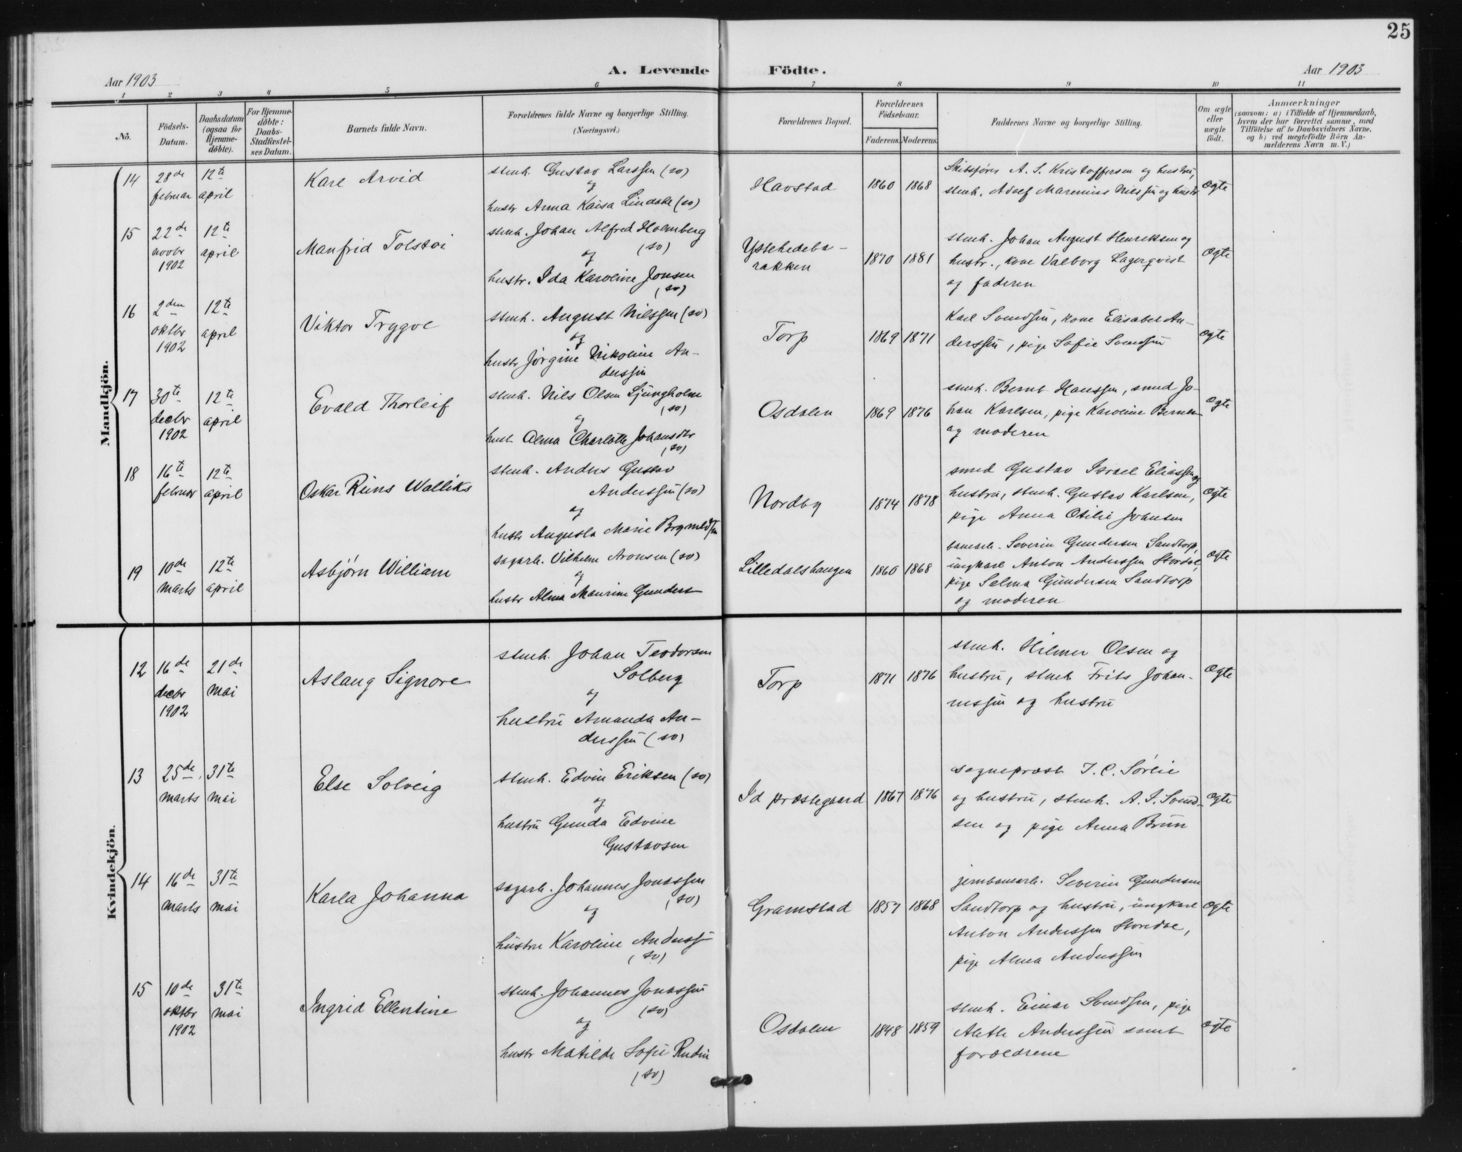 25
Aar 1903
A. Levende Födte.
Aar 1903
1 2 3 4 5 6 7 8 9 10 11
No.
Födsels-Datum.
Daabsdatum (ogsaa for Hjemme-døbte).
For Hjemme-døbte: Daabs-Stadfæstel-ses Datum.
Barnets fulde Navn.
Forældrenes fulde Navne og borgerlige Stilling.
(Næringsvei.)
Forældrenes Bopæl.
Forældrenes Födselsaar.
Faderens. Moderens.
Faddernes Navne og borgerlige Stilling.
Om ægte eller uægte født.
Anmærkninger
(saasom: a) i Tilfælde af Hjemmedaab, hvem der har forrettet samme, med Tilföielse af to Daabsvidners Navne, og b) ved uegtefödte Börn An-melderens Navn m. V.)
Mandkjön.
14 28de februar 12te april
Kare Arvid
stenh. Gustav Larssen (sv)
og
hustr Anna Kaisa Lindahl (sv)
Havstad 1860 1868
Skibsförer A. S. Kristoffersen og hustru,
stenh. Adolf Marenius Nilssen og hustr
ægte
15 22de novbr 1902 12te april
Manfrid Tolstoi
stenh. Johan Alfred Holmberg
(sv)
og
hustr. Ida Karoline Jonsen
(sv)
Ystehedeba-
rakken
1870 1881
stenh. Johan August Henriksen og
hustr., kone Valborg Lagerqvist
og faderen
ægte
16 2den oktbr 1902 12te april
Viktor Trygve
stenh. August Nilssen (sv)
og
hustr Jørgine Nikoline An-
derssen
Torp 1869 1871
Karl Svendsen, kone Elisabet An-
derssen, pige Sofie Svendsen
ægte
17 30te decbr 1902 12te april
Evald Thorleif
stenh. Nils Olsen Ljungholm
(sv)
og
hust. Alma Charlotte Johansdtr
(sv)
Osdalen 1869 1876
stenh. Bernt Hanssen, smed Jo-
han Karlsen, pige Karoline Bernsen
og moderen
ægte
18 16te februar 12te april
Oskar Reins Walliks
stenh. Anders Gustav
Anderssen (sv)
og
hustr Augusta Marie Brynildsen
Nordby 1874 1878
smed Gustav Israel Eliassen og
hustru, stenh. Gustav Karlsen,
pige Anna Otilie Johansen
ægte
19 10de marts 12te april
Asbjørn William
sagarb. Vilhelm Aronsen (sv)
og
hustr Alma Maurine Gunders
Lilledalshaugen 1860 1868
banearb. Severin Gundersen Sandtorp,
ungkarl Anton Anderssen Stordal,
pige Selma Gundersen Sandtorp
og moderen
ægte
Kvindekjön.
12 16de decbr 1902 21de mai
Aslaug Signore
stenh. Johan Teodorsen
Solberg
og
hustru Amanda An-
derssen (sv)
Torp 1871 1876
stenh. Hilmer Olsen og
hustru, stenh Frits Johan-
nessen og hustru
ægte
13 25de marts 31te mai
Else Solveig
stenh. Edvin Eriksen (sv)
og
hustru Gunda Edvine
Gustavsen
Id præstegaard 1867 1876
sognepræst J. C. Sörlie
og hustru, stenh. A. J. Svend-
sen og pige Anna Brun
ægte
14 16de marts 31te mai
Karla Johanna
sagarb. Johannes Jonassen
(sv)
og
hustru Karoline Anderss
(sv)
Gramstad 1857 1868
jernbanearb. Severin Gundersen
Sandtorp og hustru, ungkarl
Anton Anderssen Stordal,
pige Alma Anderssen
ægte
15 10de oktbr 1902 31te mai
Ingrid Ellentine
stenh. Johannes Jonassen
(sv)
og
hustr Matilde Sofie Rudin
(sv)
Osdalen 1848 1859
stenh. Einar Svendsen, pige
Alette Anderssen samt
forældrene
ægte